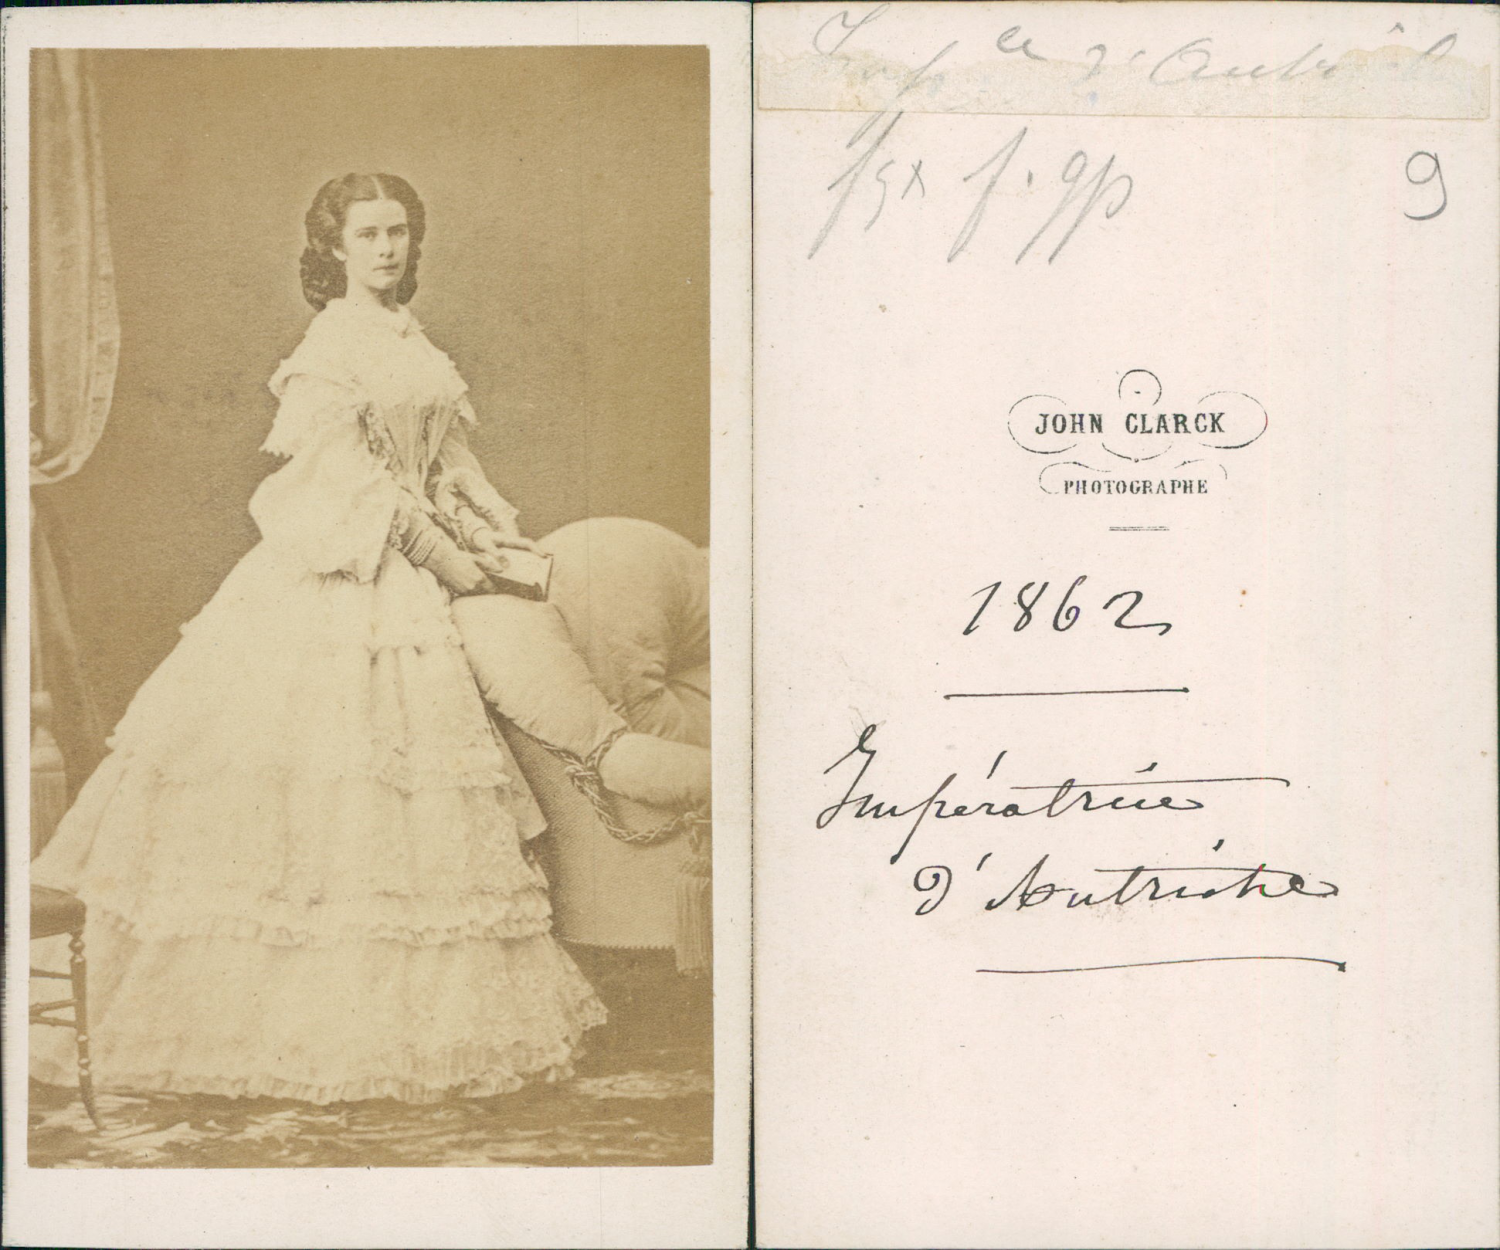 Imp ce d'Autriche
9
JOHN CLARCK
PHOTOGRAPHE
1862
Impératrice
d'Autriche